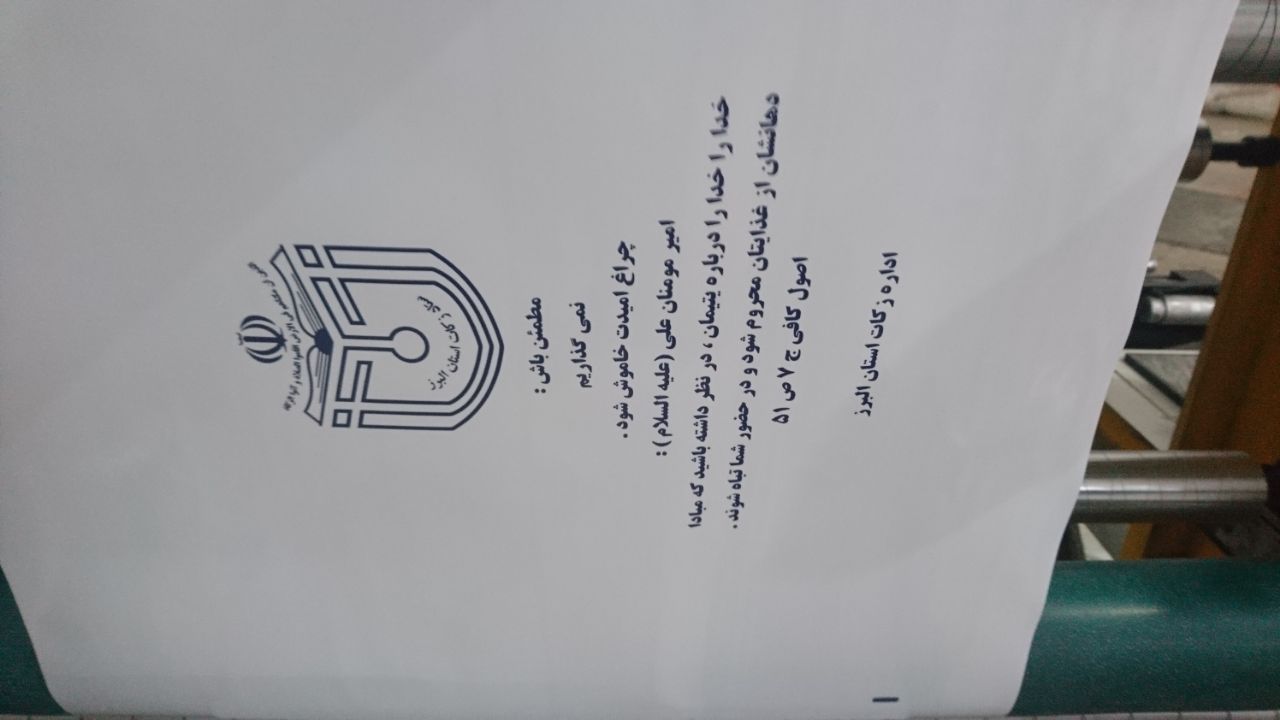 مطمئن باش :
نمی گذاریم
چراغ امیدت خاموش شود .
امیر مومنان علی (علیه السلام) :
خدا را خدا را درباره یتیمان ، در نظر داشته باشید که مبادا
دهانشان از غذایتان محروم شود و در حضور شما تباه شوند .
اصول کافی ج ۷ ص ۵۱
اداره زکات استان البرز